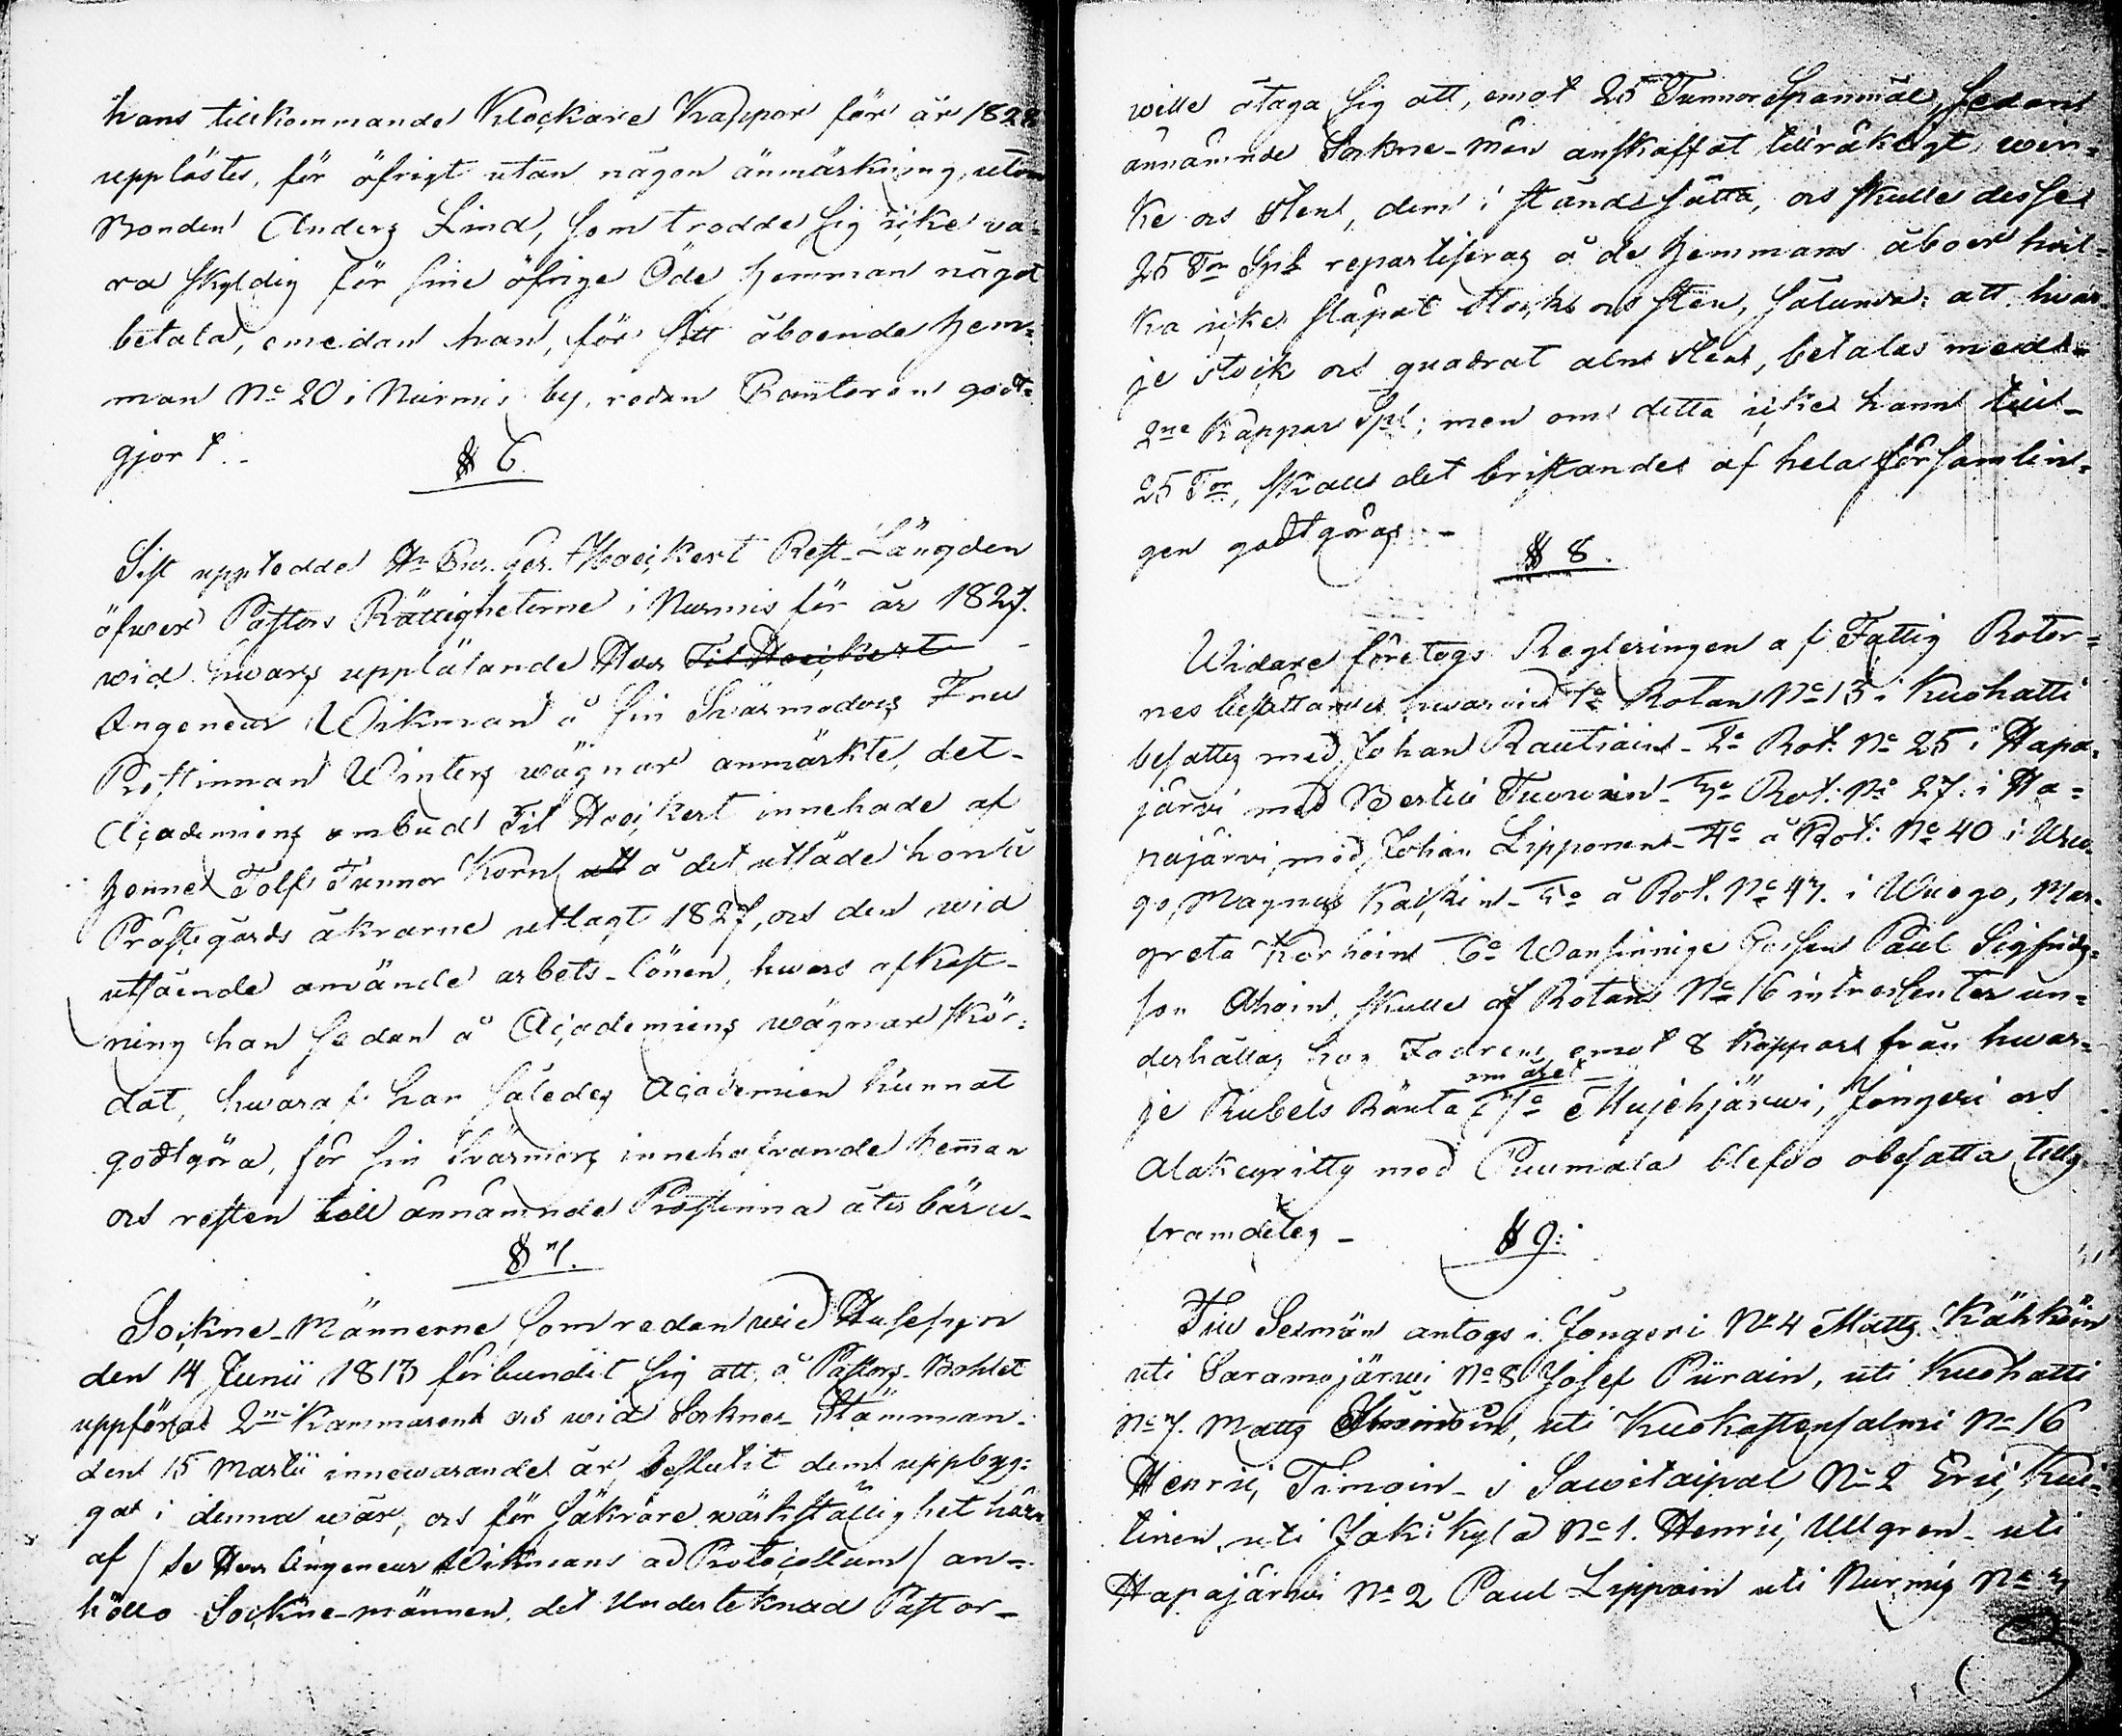 hans tillkommande Klockare Kappor för år 182
upplästes, för öfrigt utan någon anmärkning, utom
Bonden Anders Lind, som trodde sig icke va-
ra skyldig för sine öfrige Öde hemman något
betala, emedan han, för sitt åboende hem-
man No 20 i Nurmis by, redan Cantoren godt-
gjort.-
§ 6.
Sist upplödde Hr Hoeckert Rest-Längden
öfwer Pastors Rättigheterne i Nurmis för år 1827.
wid hwars upplåtande Herr Fil Hoeckert -
Ingeneur Wikman å sin Swärmoders Fru
Prostinnan Winters wägnar anmärkte, det-
Academiens ombud Fil Hoeckert innehade af
henne Tolf Tunnor Korn att å det utsäde hon å
Prästegårds åkrarne utlagt 1827, och den wid
utsående använde arbets-lönen, hwars afkast-
ning han sedan å Academiens wägnar skör-
dat, hwaraf han således Academien kunnat
godtgöra, för sin Swärmors innehafwande hem̅an
och resten till ännämnde Prostinna återbäru-
§ 7.
Sockne-Männerne som redan wid Husesyn
den 14 Junii 1813 förbundit sig att å Pastors-Bohlet
uppföra 2ne Kammaren och wid Sockne-Stämman-
den 15 Martii innewarande år, beslutit dem uppbyg-
ga i denna wår, och för säkrare wärkställighet här-
af / se Herr Ingeneur Wikmans ad Protocollum / an-
höllo Sockne-männen, det Undertecknad Pastor-
wille åtaga sig att, emot 25 Tunnor Spanmål, sedan
ännämnde Sockne-Män anskaffat tillräkligt wir-
ke och sten, dem i stånd sätta, och skulle desse
25 Tnr Spl repartiseras å de hemmans åboer hwil-
ka icke släpat stock och sten, sålunda: att hwar-
je stock och quadrat aln sten, betalas med
2ne Kappar Spl; men om detta icke hann till-
25 Tnr, skall det bristande af hela församlin-
gen godtgöras -
§ 8.
Widare företogs Regleringen af Fattig Roter-
nes besättande hwarwid 1o Rotan No 13 i Kuohatti
besattes med Johan Rautiain - 2o Rot: No 25 i Hapa-
järvi med Bertil Tuovein - 3o Rot: No 27. i Ha-
pajärvi, med Johan Lipponen - 4o å Rot: No 40 i Wuo-
go, Magnus Kaikein - 5o å Rot. No 47. i Wuogo, Mar-
greta Korhoin 6o Wansinnige Gossen Paul Sigfrids-
son Ahoin, skulle af Rotans No 16 intressenter un-
derhållas hos Fadren emot 8 Kappar från hwar-
om året
je Rubels Ränta 7o Mujehjärwi, Jongeri och
Alakeyritty med Puumala blefvo obesatta tills
framdeles -
§ 9.
Till Sexmän antogs i Jongeri No 4 Matts Kähköin
uti Saramojärwi No 8 Josef Piirain, uti Kuohatti
No 7. Matts uti Kuokastensalmi No 16
Henric Timoin - i Sawikaipal No 2 Eric Kui-
tinen, uti Jokikylä No 1. Henric Ullgren - uti
Hapajärwi No 2 Paul Lippoin uti Nurmis No 3